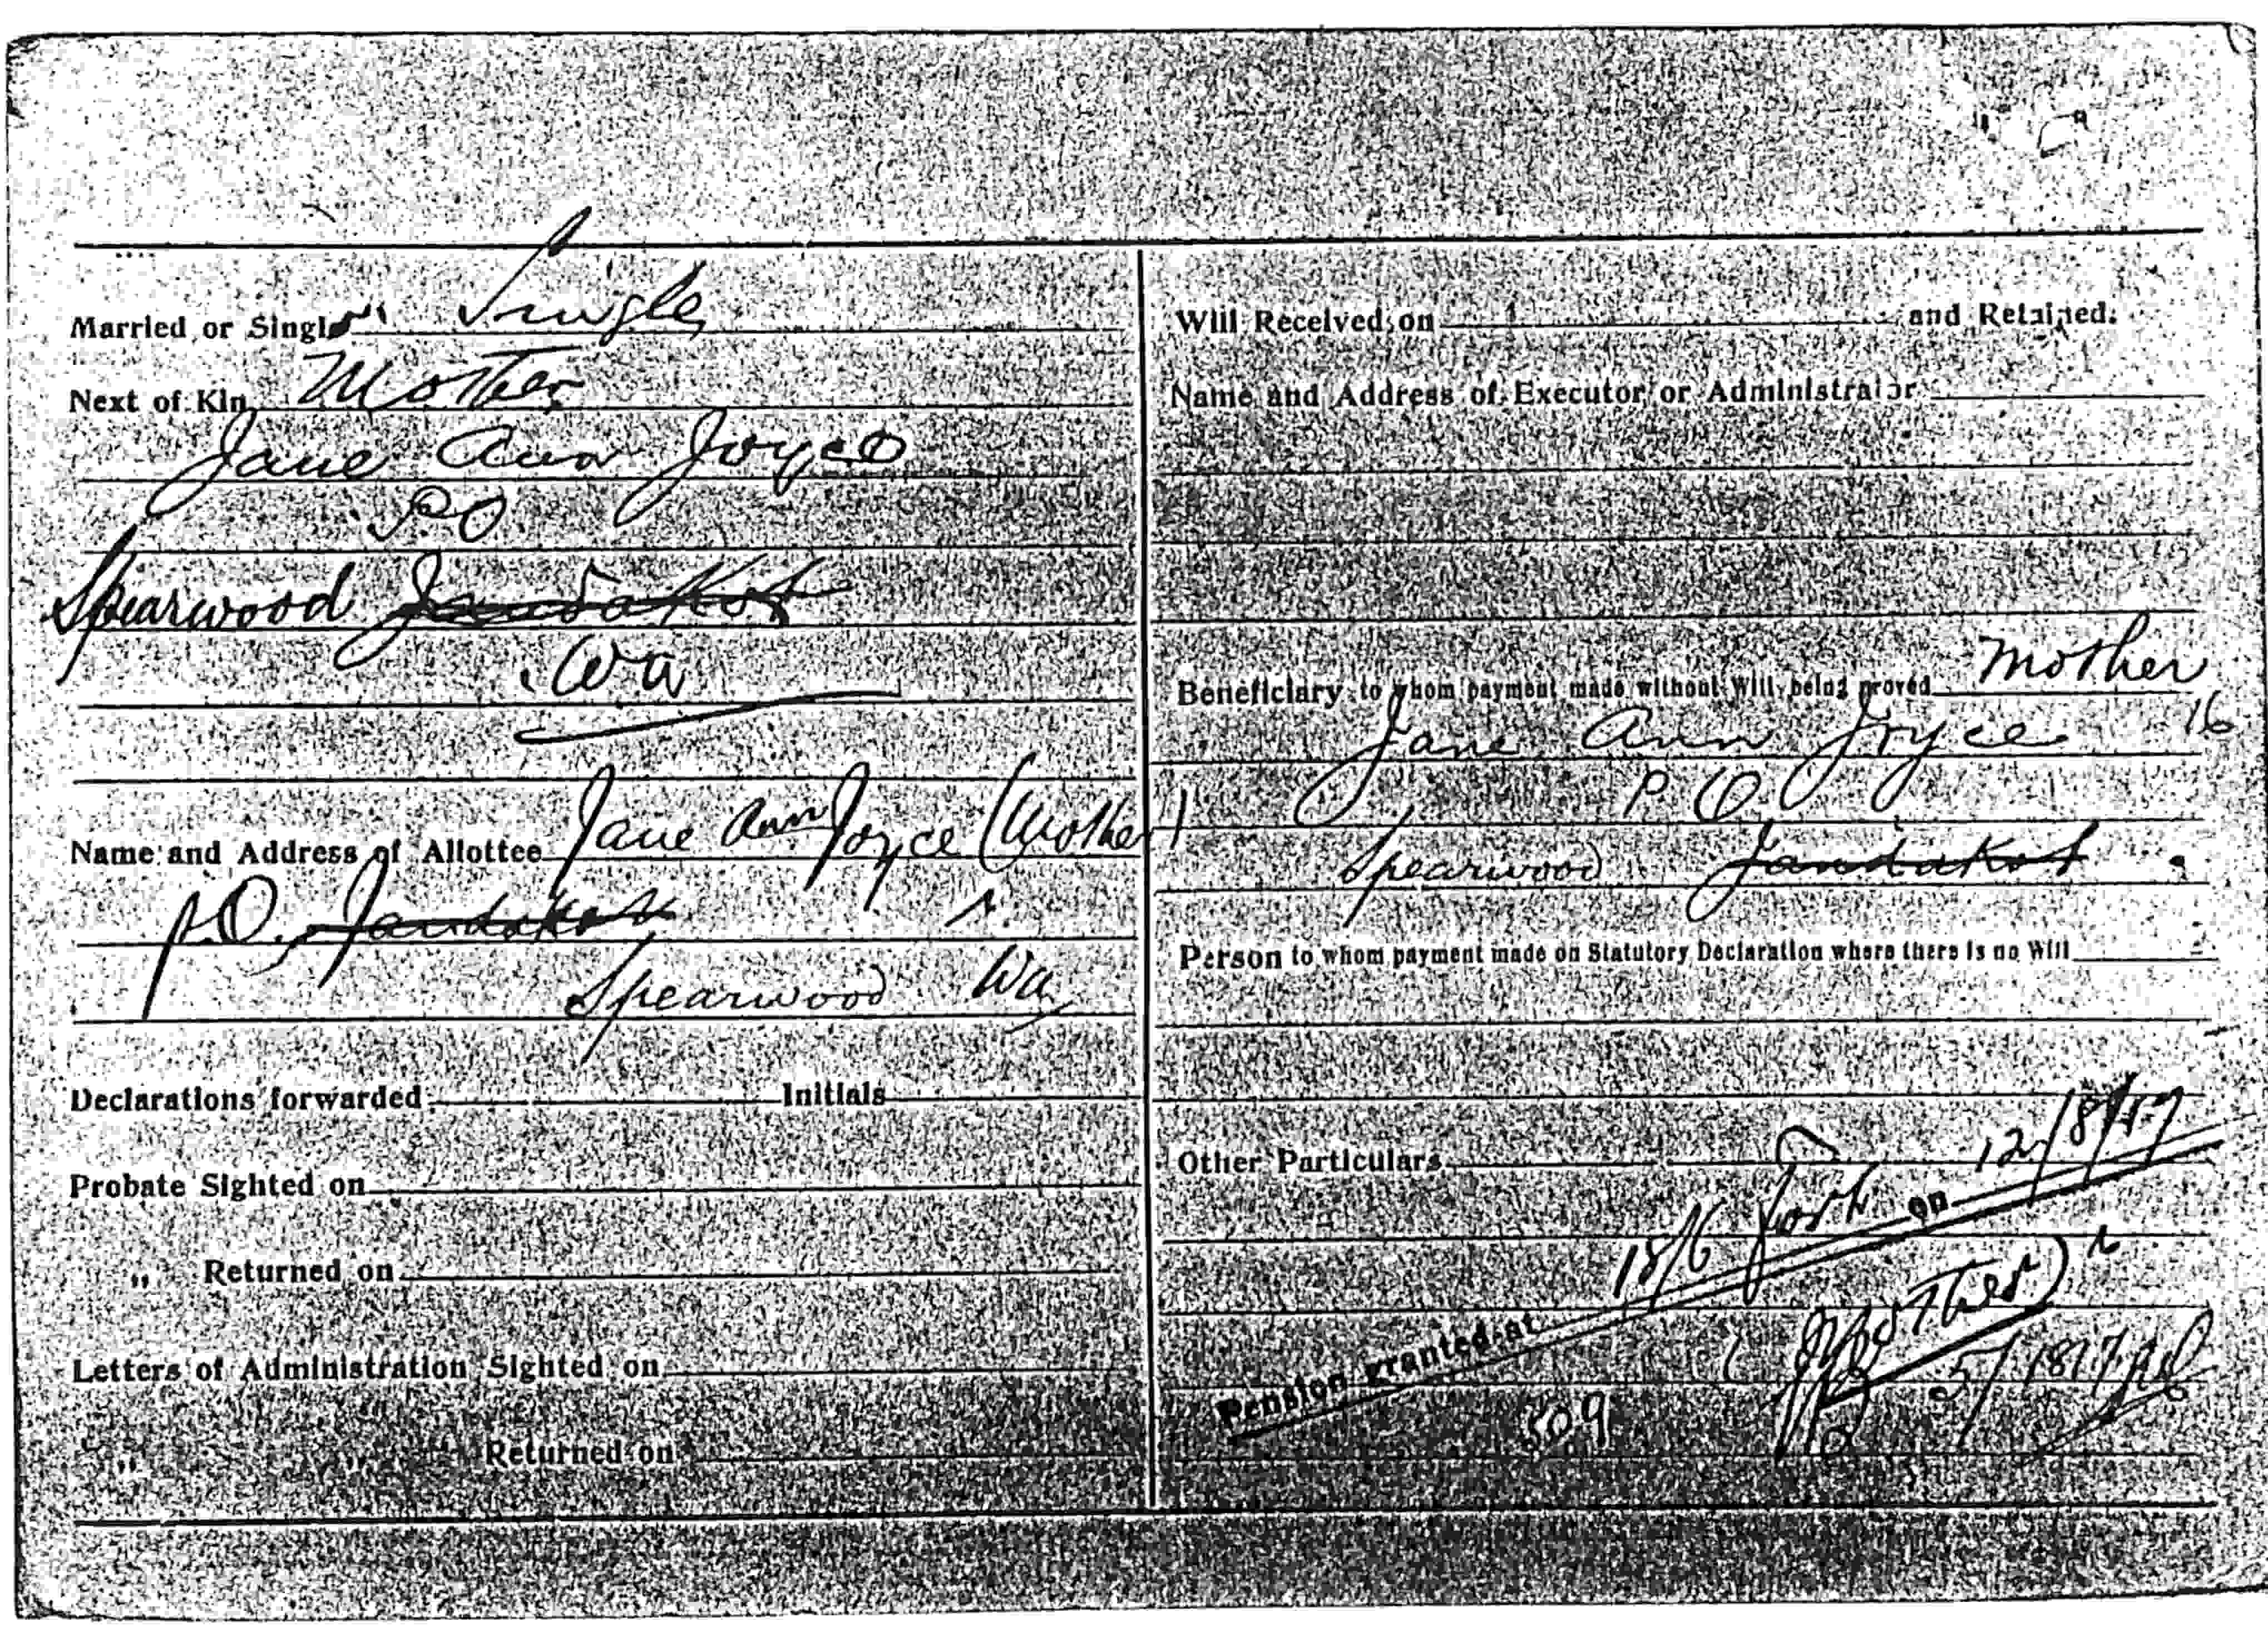 Married or Single Single
Next of Kin Mother
Jane Ann Joyce
P.O
Spearwood Jandakot
Wa
Name and Address of Allottee Jane Ann Joyce (Mother)
P.O. Jandakot
Spearwood Wa
Declarations forwarded Initials
Probate Sighted on
„ Returned on
Letters of Administration Sighted on
„ „ Returned on
Will Received on and Retained.
Name and Address of Executor or Administrator
Beneficiary to whom payment made without Will being proved Mother
Jane Ann Joyce 16
P O.
Spearwood Jandakot
Person to whom payment made on Statutory Declaration where there is no Will
Other Particulars
Pension granted at 18/6 Fort on 12/8/17
(Mother)
509